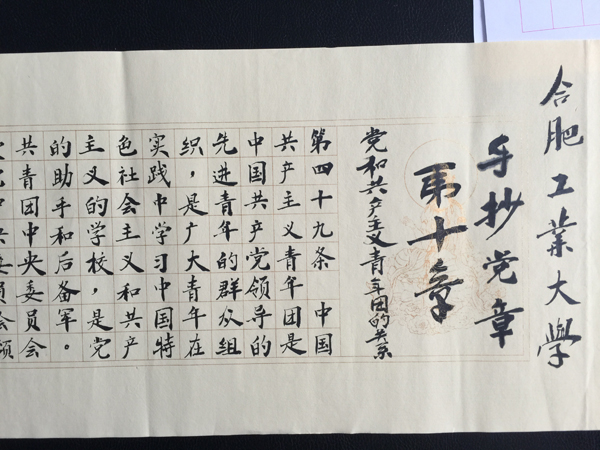 合肥工业大學
手抄党章
第十章
党和共产主义青年团的关系
第四十九条 中国
共产主义青年团是
中国共产党领导的
先进青年的群众组
织，是广大青年在
实践中学习中国特
色社会主义和共产
主义的学校，是党
的助手和后备军。
共青团中央委员会